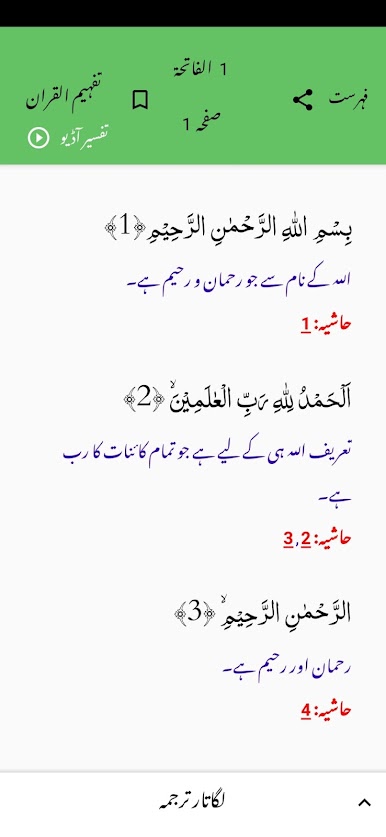 1 الفاتحة
فہرست
تفہیم القرآن
صفحہ 1
تفسیر آڈیو
بِسْمِ اللهِ الرَّحْمٰنِ الرَّحِيْمِ ﴿1﴾
اللہ کے نام سے جو رحمان و رحیم ہے۔
حاشیہ: 1
اَلْحَمْدُ لِلّٰهِ رَبِّ الْعٰلَمِيْنَۙ ﴿2﴾
تعریف اللہ ہی کے لیے ہے جو تمام کائنات کا رب
ہے۔
حاشیہ: 2, 3
الرَّحْمٰنِ الرَّحِيْمِۙ ﴿3﴾
رحمان اور رحیم ہے۔
حاشیہ: 4
لگاتار ترجمہ